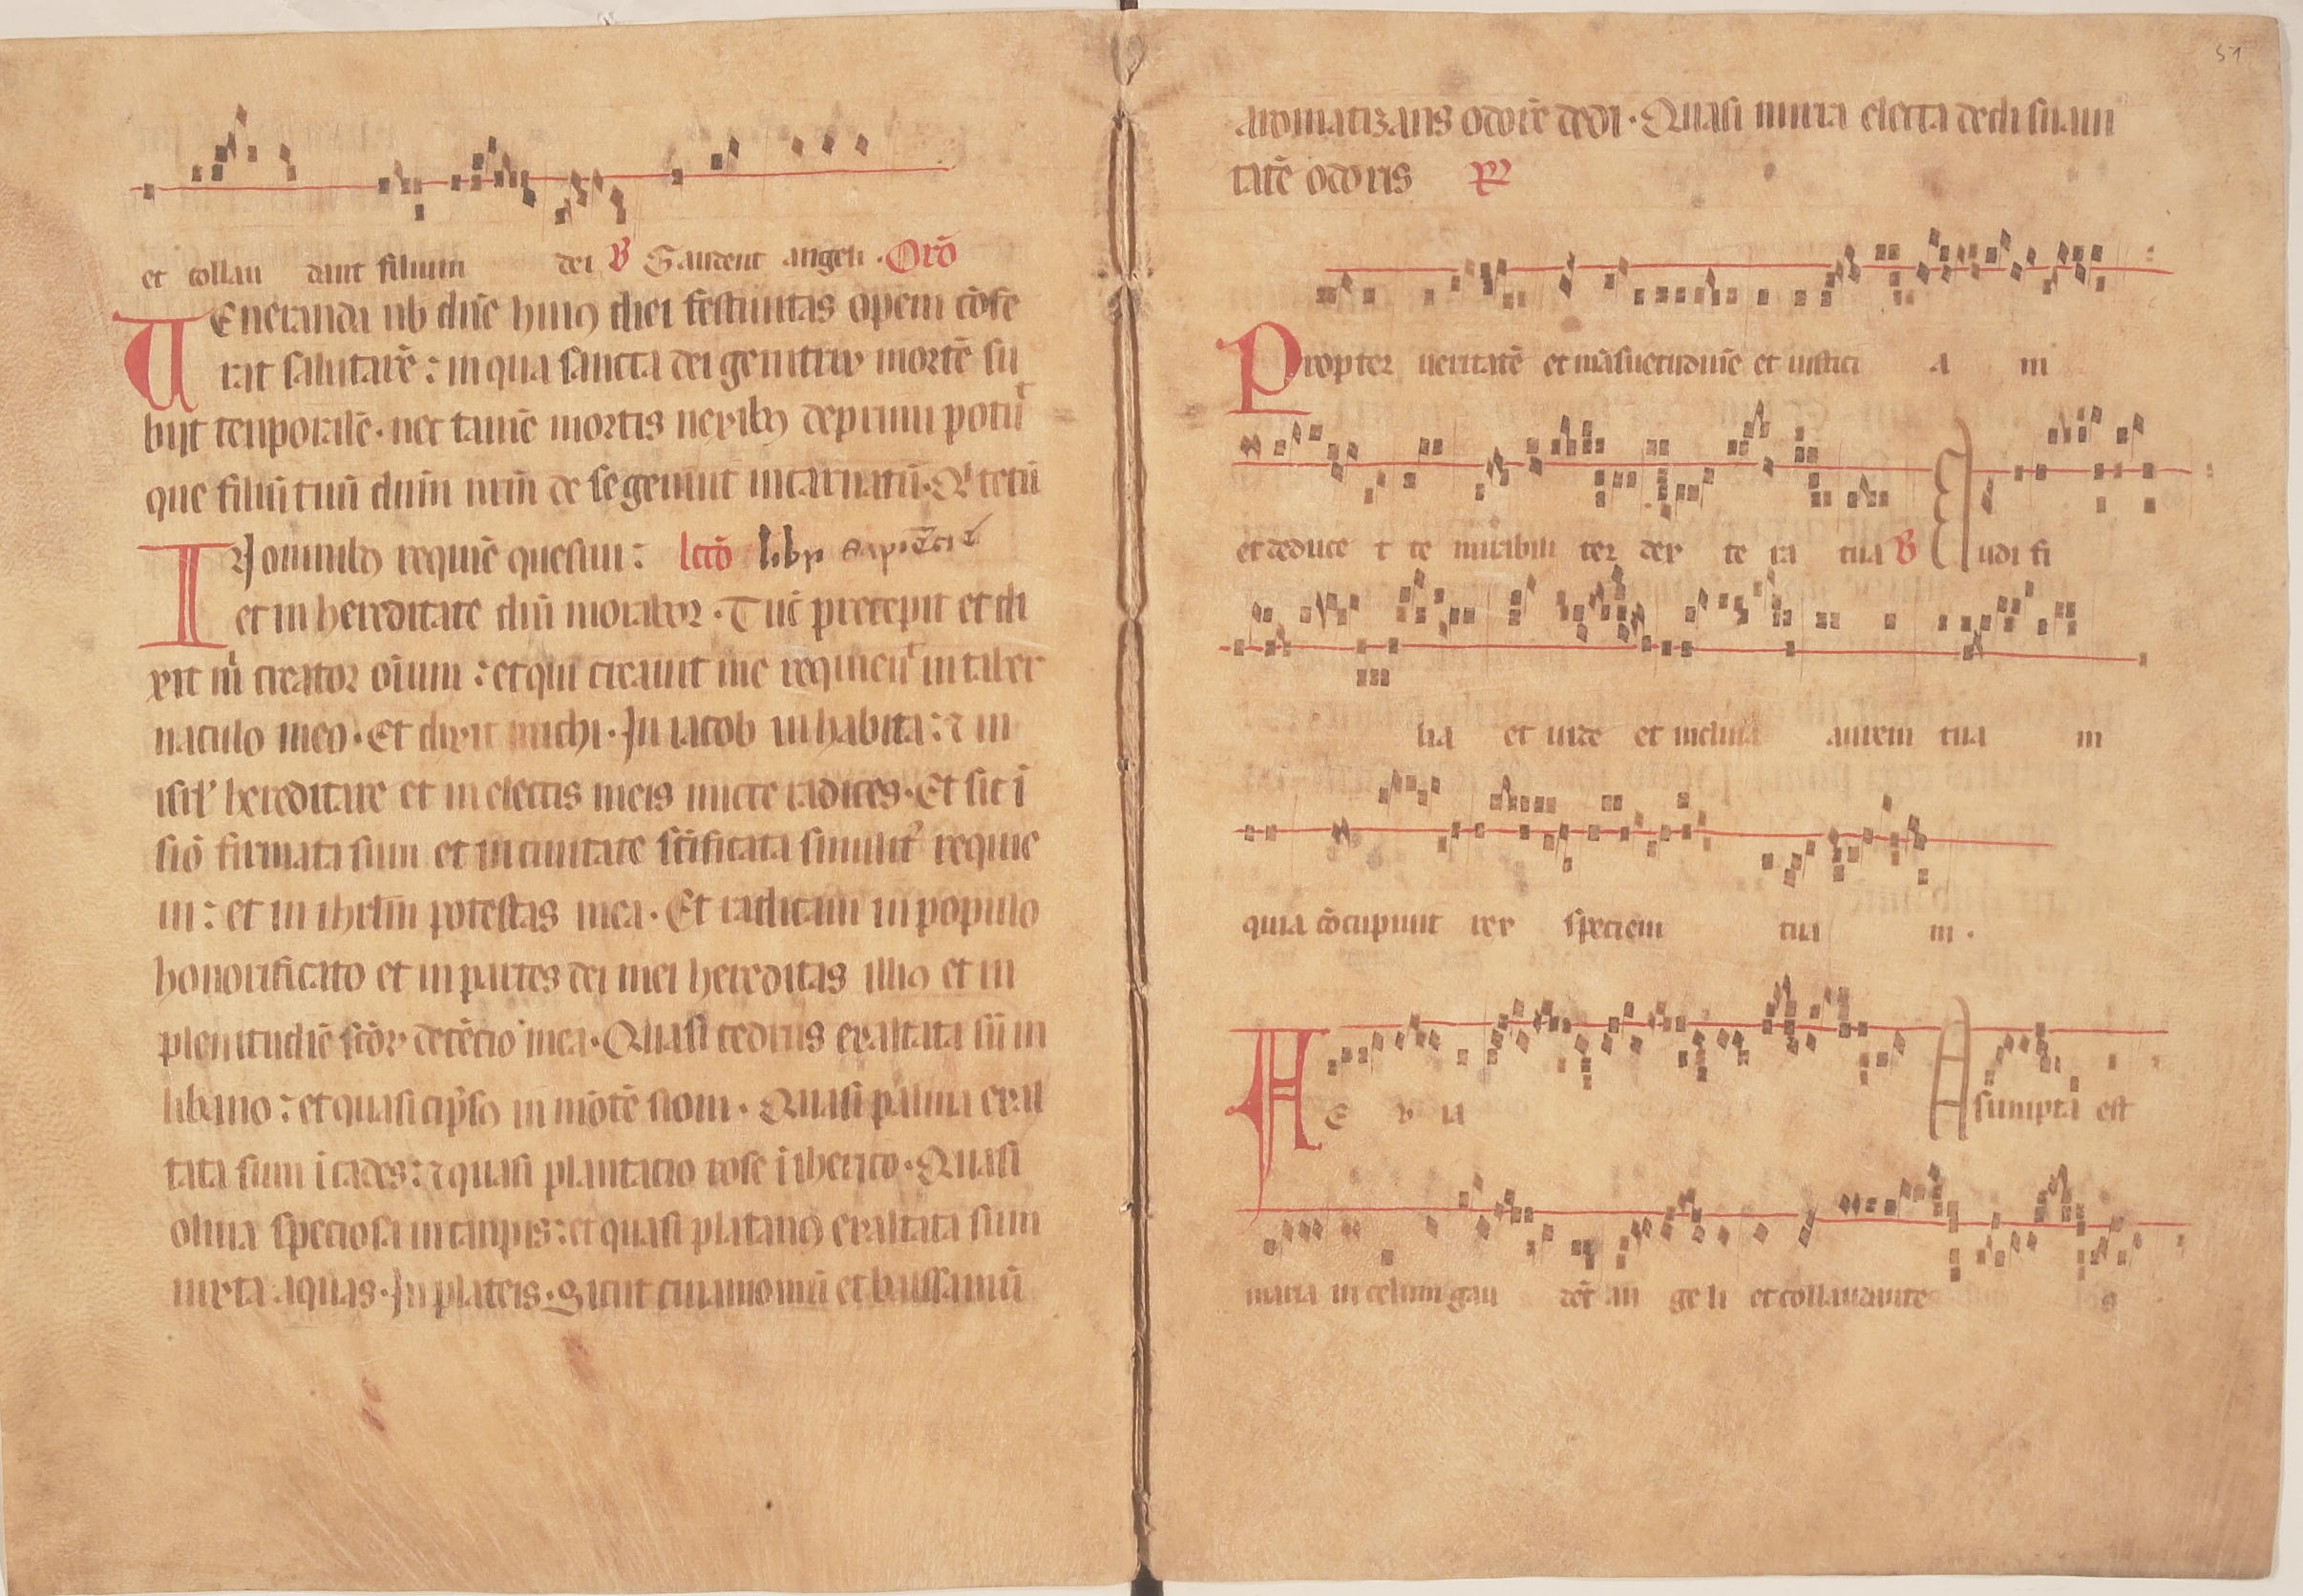 et collau dant filium dei V Gaudent angeli. Orō
Veneranda nb dn̄e huiꝯ diei festiuitas opem cōfe
rat salutarē: in qua sancta dei genitrix mortē su
bijt temporalē. nec tamē mortis nexibꝯ deprimi potuͭ
que filiū tuū dnm̄ nrm̄ de se genuit incarnatū. Q̇ tecū
In omnibꝯ requiē quesiui: lcō libri sapiēcie
et in hereditate dn̄i morabor. Tūc precepit et di
xit m̄ creator oīum: et qui creauit me requieuͭ in taber
naculo meo. Et dixit michi. In iacob inhabita: ⁊ in
isrl' hereditare et in electis meis mitte radices. Et sic ī
siō firmata sum et in ciuitate sc̄ificata similit̉ requie
ui: et in ihrlm̄ potestas mea. Et radicaui in populo
honorificato et in partes dei mei hereditas illiꝯ et in
plenitudiē sc̄oꝝ detēcio mea. Quasi cedrus exaltata sū in
libano: et quasi cip̄ssꝯ in mōte sion. Quasi palma exal
tata sum ī cades: ⁊ quasi plantatio rose ī iherico. Quasi
oliua speciosa in canpis: et quasi platanꝯ exaltata sum
iuxta aquas. In plateis. Sicut cinamomū et balsamū
51
aromatizans odorē dedi. Quasi mirra electa dedi suaui
tatē odoris
Propter ueritatē et māsuetudinē et iustici a m
et deduce t te mirabili ter dex te ra tua V Audi fi
lia et uide et inclina aurem tua m
quia cōcupiuit rex speciem tua m.
A E v ia Assumpta est
maria in celum gau dēt an ge li et collaudante s